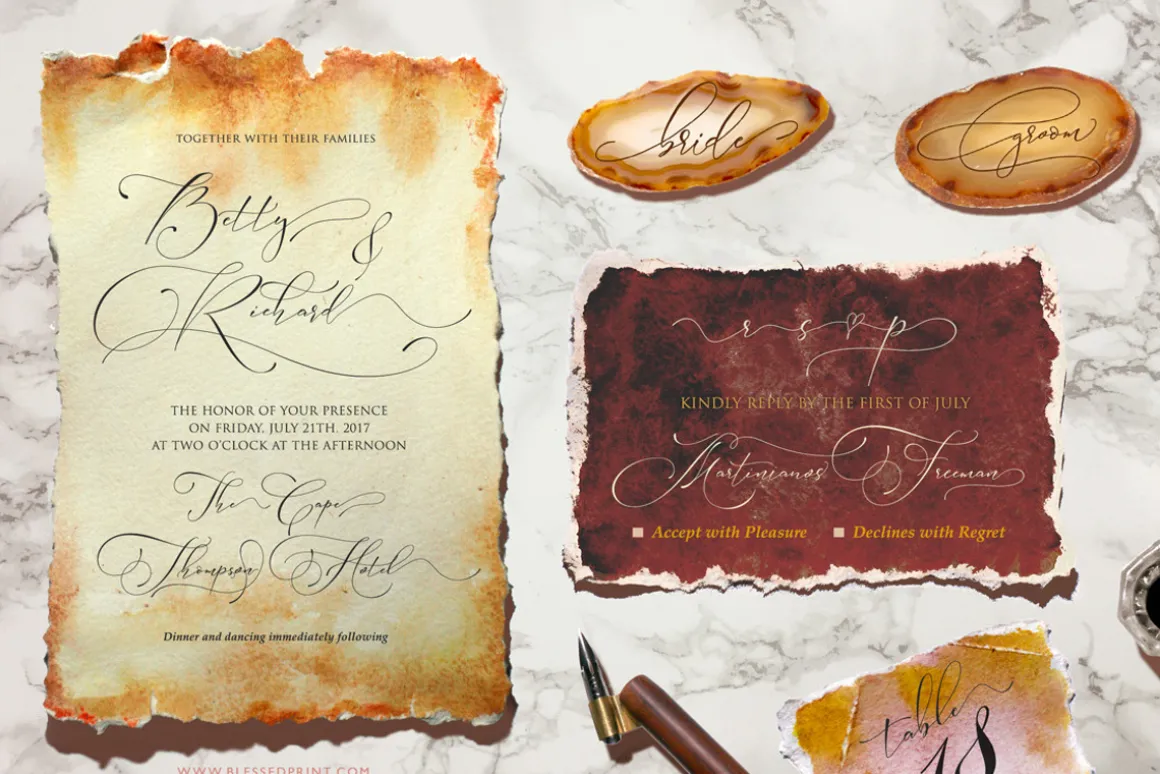 TOGETHER WITH THEIR FAMILIES
Betty
&
Richard
THE HONOR OF YOUR PRESENCE
ON FRIDAY, JULY 21TH. 2017
AT TWO O'CLOCK AT THE AFTERNOON
The Cape
Thompson Hotel
Dinner and dancing immediately following
WWW.BLESSEDPRINT.COM
bride
groom
rsvp
KINDLY REPLY BY THE FIRST OF JULY
Martinianos Freeman
Accept with Pleasure Declines with Regret
table
18